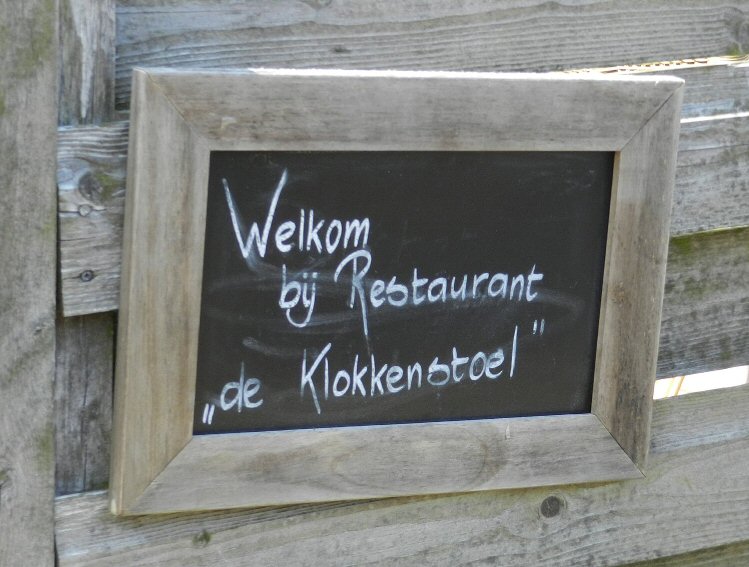 Welkom
bij Restaurant
„de Klokkenstoel"